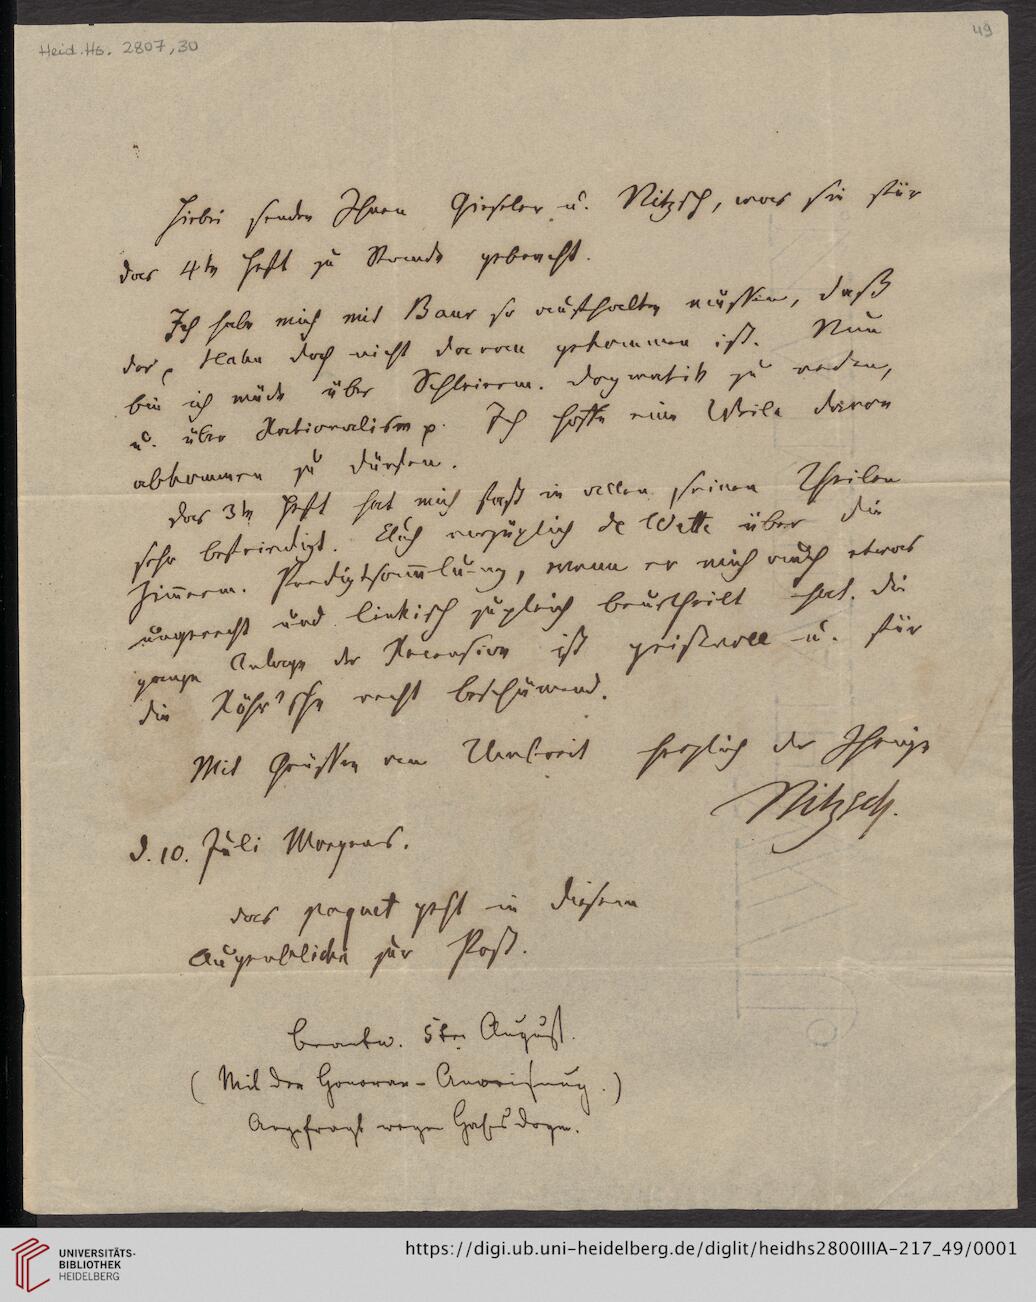 Heid. Hs. 2807,30
49
Hiebei senden Ihnen Gieseler u. Nitzsch, was sie für
das 4te Heft zu Stande gebracht.
Ich habe mich mit Baur so aufhalten müssen, daß
der Hahn doch nicht daran gekommen ist. Nun
bin ich müde über Schleierm. Dogmatik zu reden,
u. über Rationalism p. Ich hoffe eine Weile davon
abkommen zu dürfen.
Das 3te Heft hat mich fast in allen seinen Theilen
sehr befriedigt. Auch vorzüglich de Wette über die
Zimmerm. Predigtsammlung, wenn er mich auch etwas
ungerecht und linkisch zugleich beurtheilt hat. Die
ganze Anlage der Recension ist geistvoll u. für
die Röhr'sche recht beschämend.
Mit Grüssen an Umbreit herzlich der Ihrige
Nitzsch.
d. 10. Juli Morgens.
das paquet geht in diesem
Augenblicke zur Post.
beantw. 5ten August.
(Mit der Honorar-Anweisung.)
Angefragt wegen Hases Dogm.
UNIVERSITÄTS-
BIBLIOTHEK
HEIDELBERG
https://digi.ub.uni-heidelberg.de/diglit/heidhs2800IIIA-217_49/0001